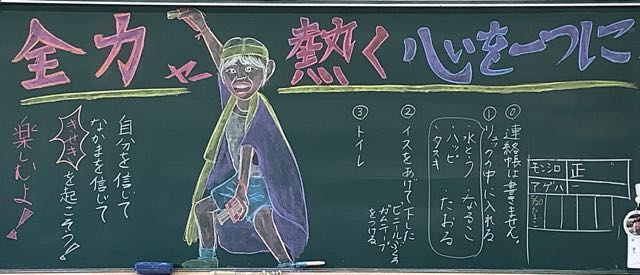 全力
熱く
心を一つに
⓪連絡帳は書きません。
①リュックの中に入れる
水とう なるこ
ハッピ たおる
タスキ
②イスをあげて下した
ビニールぶくろ
ガムテープ
をつける
③トイレ
自分を信じて
なかまを信じて
きせきを起こそう!!
楽しむよ!!
モンシロ 正
アゲハ 一